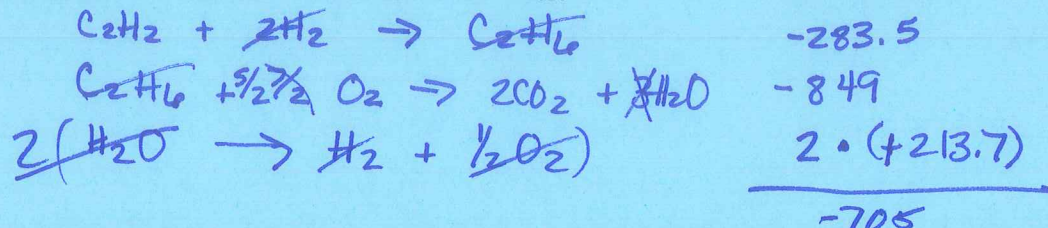 C2H2 + 2H2 → C2H6 -283.5
C2H6 + 5/2 7/2 O2 → 2CO2 + 3H2O -849
2(H2O → H2 + 1/2O2) 2 • (+213.7)
-705